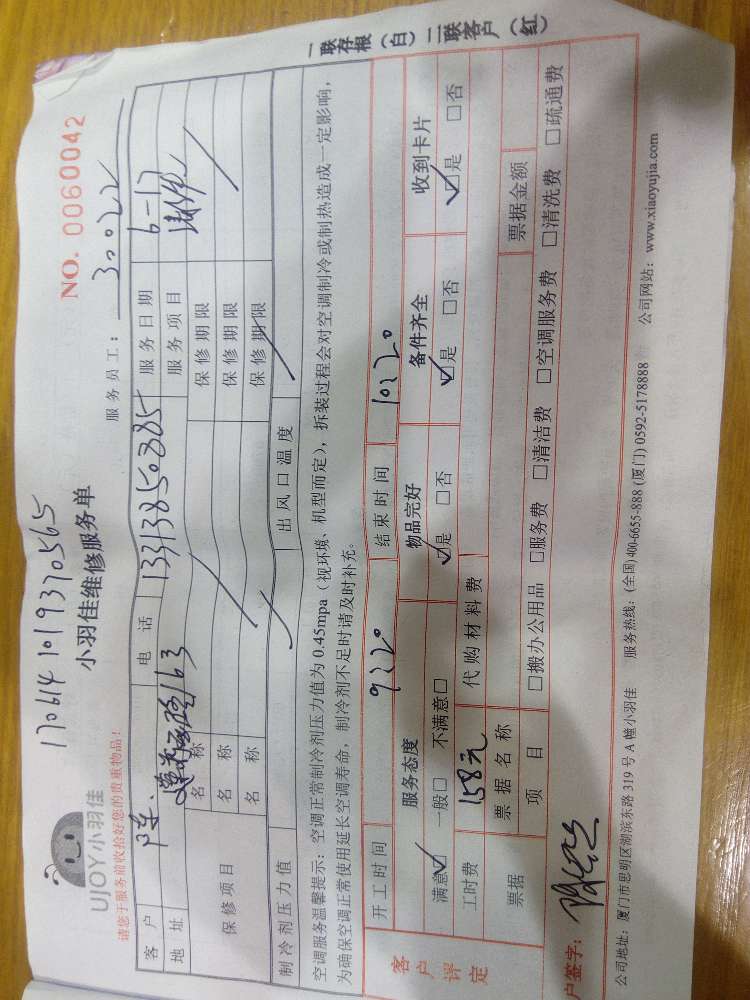 1706141019370565
UJOY小羽佳
小羽佳维修服务单
NO. 0060042
请您于服务前收拾好您的贵重物品！
服务员工： 30022
客户 陈 电话 13313850385 服务日期 6-17
地址 163 服务项目
保修项目
名称 保修期限
名称 保修期限
名称 保修期限
制冷剂压力值 出风口温度
空调服务温馨提示：空调正常制冷剂压力值为 0.45mpa（视环境、机型而定），拆装过程会对空调制冷或制热造成一定影响，
为确保空调正常使用延长空调寿命，制冷剂不足时请及时补充。
开工时间 9:20 结束时间 10:20
客户评定
服务态度 物品完好 备件齐全 收到卡片
满意☑ 一般□ 不满意□ ☑是 □否 ☑是 □否 ☑是 □否
工时费 158元 代购材料费
票据 票据名称 票据金额
项目 □搬办公用品 □服务费 □清洁费 □空调服务费 □清洗费 □疏通费
户签字：
公司地址：厦门市思明区湖滨东路 319 号 A 幢小羽佳 服务热线：(全国) 400-6655-888 (厦门) 0592-5178888 公司网站：www.xiaoyujia.com
一联存根（白）二联客户（红）